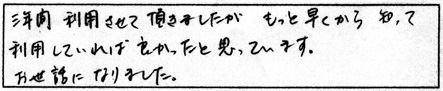 三年間 利用させて頂きましたが もっと早くから 知って
利用していれば良かったと思っています。
お世話になりました。